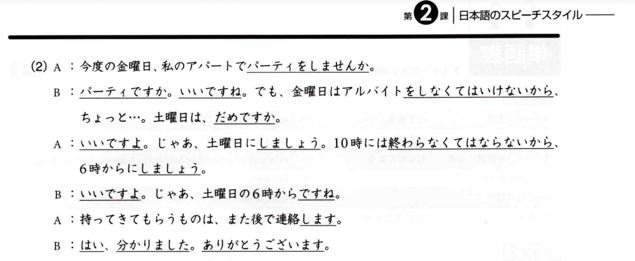 第2課 日本語のスピーチスタイル
(2) A：今度の金曜日、私のアパートでパーティをしませんか。
B：パーティですか。いいですね。でも、金曜日はアルバイトをしなくてはいけないから、
ちょっと…。土曜日は、だめですか。
A：いいですよ。じゃあ、土曜日にしましょう。10時には終わらなくてはならないから、
6時からにしましょう。
B：いいですよ。じゃあ、土曜日の6時からですね。
A：持ってきてもらうものは、また後で連絡します。
B：はい、分かりました。ありがとうございます。